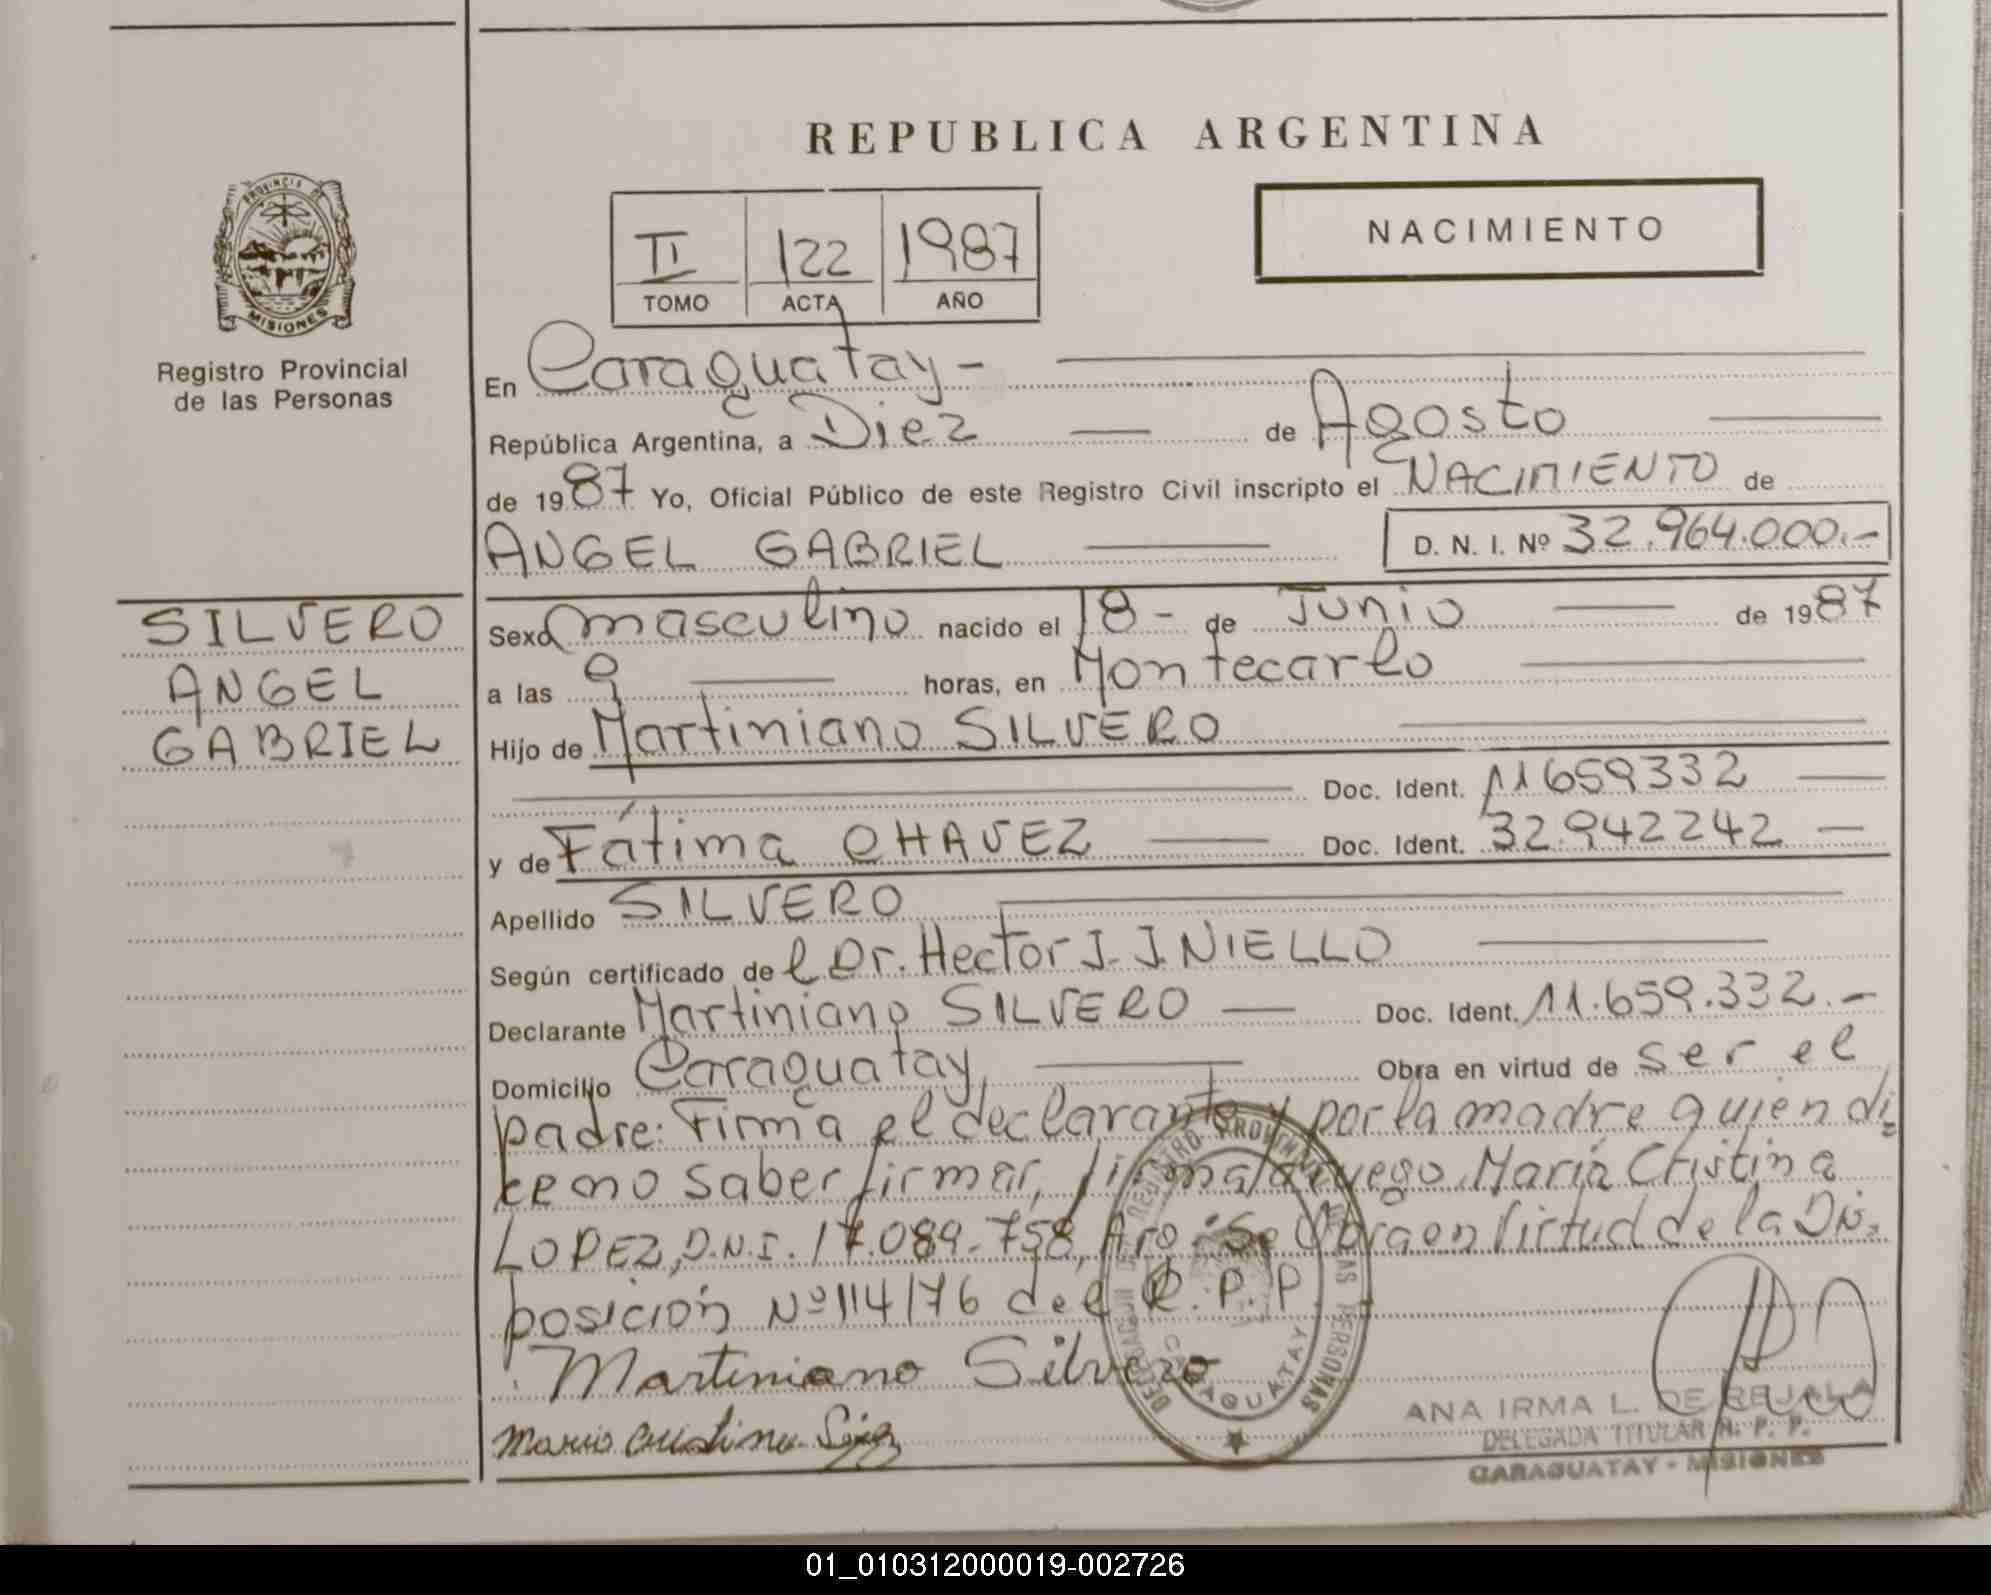 REPUBLICA ARGENTINA
PROVINCIA DE
MISIONES
Registro Provincial
de las Personas
II 122 1987
TOMO ACTA AÑO
NACIMIENTO
En Caraguatay -
República Argentina, a Diez de Agosto
de 1987 Yo, Oficial Público de este Registro Civil inscripto el NACIMIENTO de
ANGEL GABRIEL D. N. I. Nº 32.964.000.-
SILVERO
ANGEL
GABRIEL
Sexo masculino nacido el 18 - de Junio de 1987
a las 9 horas, en Montecarlo
Hijo de Martiniano SILVERO
Doc. Ident. 11659332
y de Fátima CHAVEZ Doc. Ident. 32.942242
Apellido SILVERO
Según certificado de l Dr. Hector J. J. NIELLO
Declarante Martiniano SILVERO Doc. Ident. 11.659.332.-
Domicilio Caraguatay, Obra en virtud de ser el
padre: Firma el declarante y por la madre quien di=
ce no saber firmar, firma a ruego María Cristina
LOPEZ, D.N.I. 17.089.758, Arg. Se Obra en Virtud de la Dis=
posición Nº 114/76 del R.P.P.
Martiniano Silvero
DELEGACION DE REGISTRO PROVINCIAL DE LAS PERSONAS
CARAGUATAY
ANA IRMA L. DE REJALA
DELEGADA TITULAR R. P. P.
CARAGUATAY - MISIONES
01_010312000019-002726